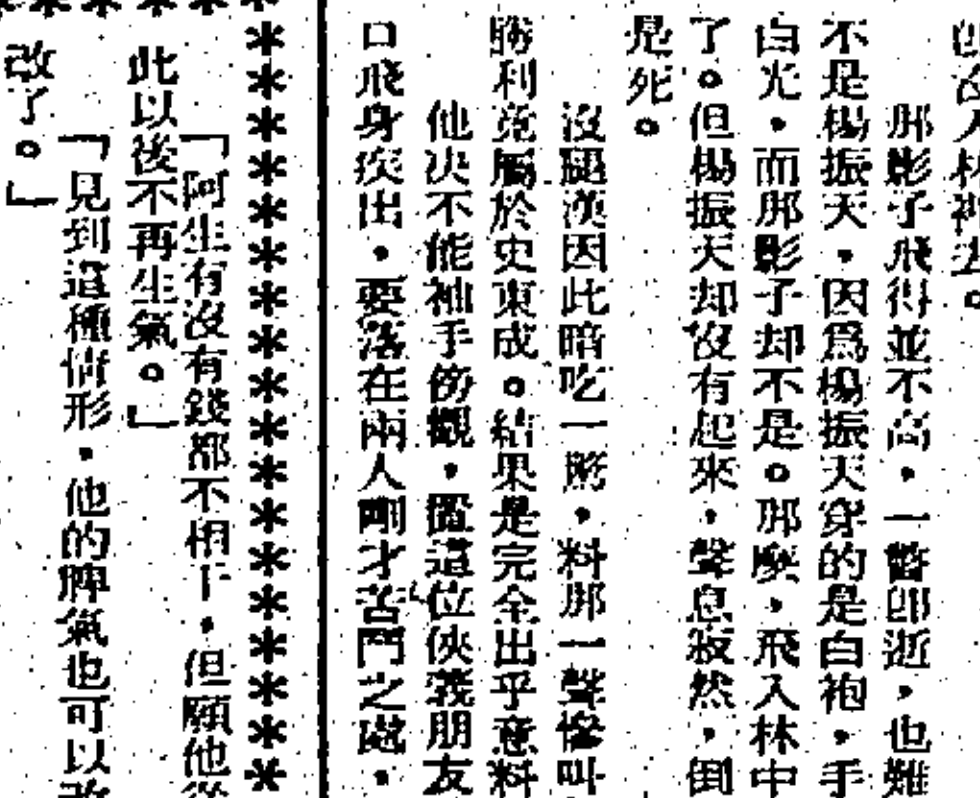 那影子飛得並不高,一瞥即逝,也難
不是楊振天,因爲楊振天穿的是白袍,手
白光,而那影子却不是。那麽,飛入林中
了。但楊振天却沒有起來,聲息寂然,倒
是死。
沒腿漢因此暗吃一驚,料那一聲慘叫
勝利竟屬於史東成。結果是完全出乎意料
他决不能袖手傍觀,置這位俠義朋友
口飛身疾出,要落在兩人剛才苦鬥之處,
**********************
「阿生有沒有錢都不相干,但願他從
此以後不再生氣。」
「見到這種情形,他的脾氣也可以改
改了。」